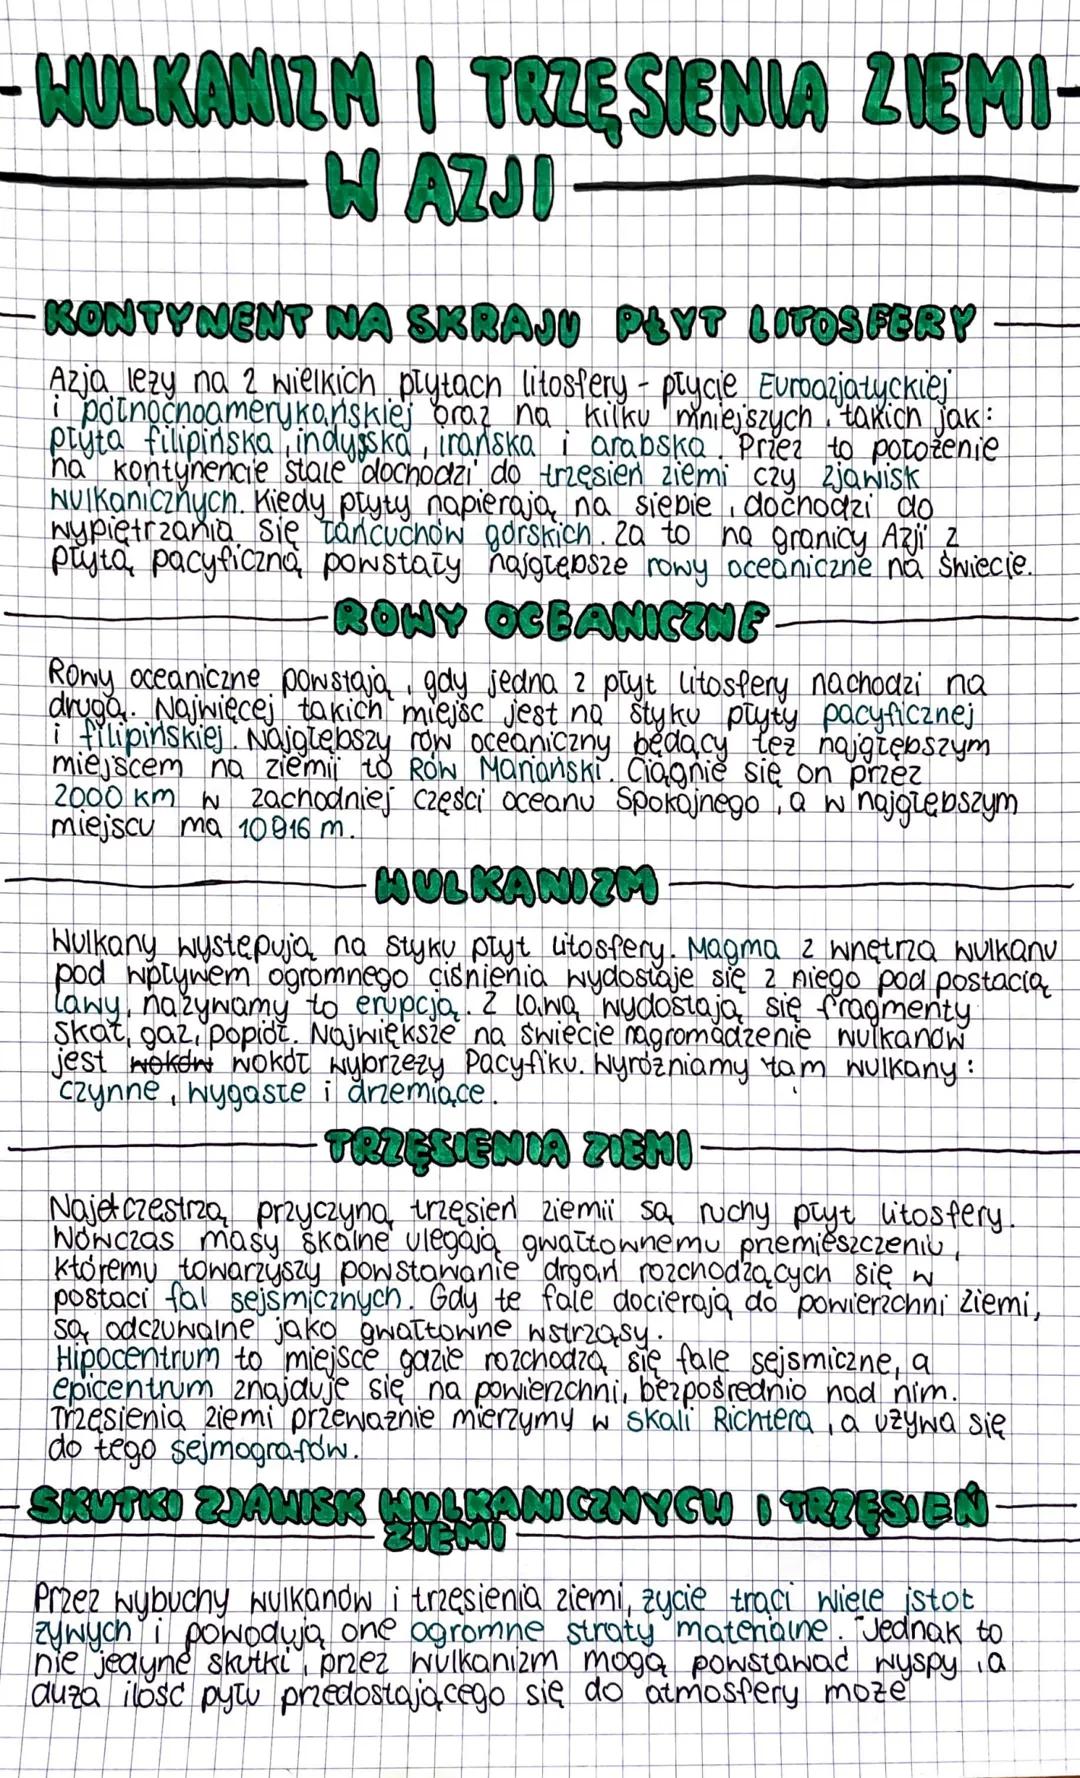 - WULKANIZM I TRZĘSIENIA ZIEMI -
W AZJI
KONTYNENT NA SKRAJU PŁYT LITOSFERY
Azja leży na 2 wielkich płytach litosfery - płycie Euroazjatyckiej
i północnoamerykańskiej oraz na kilku mniejszych, takich jak:
płyta filipińska, indyjska, irańska i arabska. Przez to położenie
na kontynencie stale dochodzi do trzęsień ziemi czy zjawisk
wulkanicznych. Kiedy płyty napierają na siebie, dochodzi do
wypiętrzania się łańcuchów górskich. Za to na granicy Azji z
płytą pacyficzną powstały najgłębsze rowy oceaniczne na świecie.
ROWY OCEANICZNE
Rowy oceaniczne powstają, gdy jedna z płyt litosfery nachodzi na
drugą. Najwięcej takich miejsc jest na styku płyty pacyficznej
i filipińskiej. Najgłębszy rów oceaniczny będący też najgłębszym
miejscem na ziemii to Rów Mariański. Ciągnie się on przez
2000 km w zachodniej części oceanu Spokojnego, a w najgłębszym
miejscu ma 10916 m.
WULKANIZM
Wulkany występują na styku płyt litosfery. Magma z wnętrza wulkanu
pod wpływem ogromnego ciśnienia wydostaje się z niego pod postacią
lawy, nazywamy to erupcją. Z lawą wydostają się fragmenty
skał, gaz, popiół. Największe na świecie nagromadzenie wulkanów
jest wokół wybrzeży Pacyfiku. Wyróżniamy tam wulkany:
czynne, wygasłe i drzemiące.
TRZĘSIENIA ZIEMI
Najczęstrzą przyczyną trzęsień ziemii są ruchy płyt litosfery.
Wówczas masy skalne ulegają gwałtownemu przemieszczeniu,
któremu towarzyszy powstawanie drgań rozchodzących się w
postaci fal sejsmicznych. Gdy te fale docierają do powierzchni ziemi,
są odczuwalne jako gwałtowne wstrząsy.
Hipocentrum to miejsce gdzie rozchodzą się fale sejsmiczne, a
epicentrum znajduje się na powierzchni, bezpośrednio nad nim.
Trzęsienia ziemi przeważnie mierzymy w skali Richtera, a używa się
do tego sejmografów.
SKUTKI ZJAWISK WULKANICZNYCH I TRZĘSIEŃ
ZIEMI
Przez wybuchy wulkanów i trzęsienia ziemi, życie traci wiele istot
żywych i powodują one ogromne straty materialne. Jednak to
nie jedyne skutki, przez wulkanizm mogą powstawać wyspy, a
duża ilość pyłu przedostającego się do atmosfery może